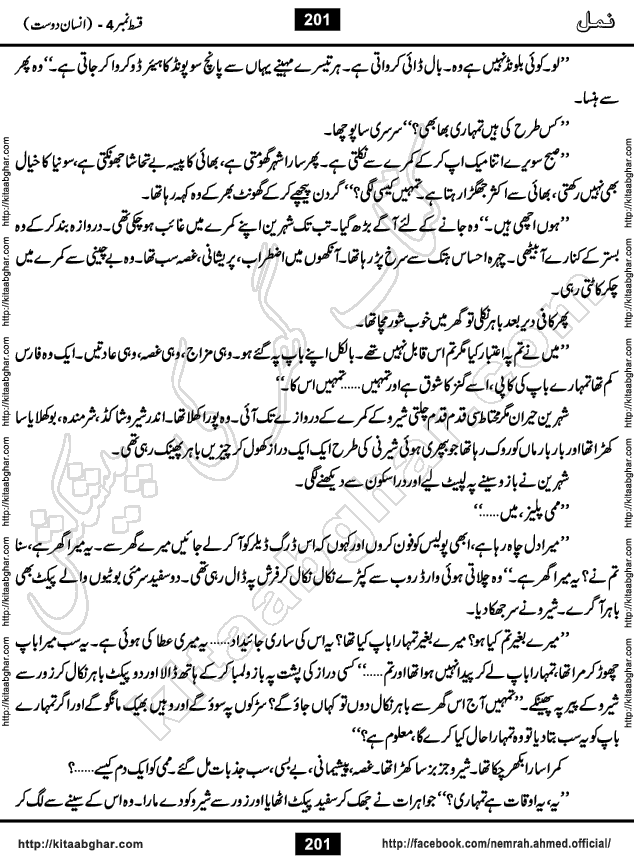 نمل
201
قسط نمبر 4 - (انسان دوست)
’’لو۔ کوئی بلونڈ نہیں ہے وہ۔ بال ڈائی کرواتی ہے۔ ہر تیسرے مہینے یہاں سے پانچ سو پونڈ کا ہیئر ڈو کروا کر جاتی ہے۔‘‘ وہ پھر
سے ہنسا۔
’’کس طرح کی ہیں تمہاری بھابھی؟‘‘ سرسری سا پوچھا۔
’’صبح سویرے اتنا میک اپ کر کے کمرے سے نکلتی ہے۔ پھر سارا شہر گھومتی ہے، بھائی کا پیسہ بے تحاشا جھونکتی ہے، سونیا کا خیال
بھی نہیں رکھتی، بھائی سے اکثر جھگڑا رہتا ہے۔ تمہیں کیسی لگی؟‘‘ گردن پیچھے کر کے گھونٹ بھر کے وہ کہہ رہا تھا۔
’’ہوں اچھی ہیں۔‘‘ وہ جانے کے لئے آگے بڑھ گیا۔ تب تک شہرین اپنے کمرے میں غائب ہو چکی تھی۔ دروازہ بند کر کے وہ
بستر کے کنارے آ بیٹھی۔ چہرہ احساس ہتک سے سرخ پڑ رہا تھا۔ آنکھوں میں اضطراب، پریشانی، غصہ سب تھا۔ وہ بے چینی سے کمرے میں
چکر کاٹتی رہی۔
پھر کافی دیر بعد باہر نکلی تو گھر میں خوب شور مچا تھا۔
’’میں نے تم پہ اعتبار کیا مگر تم اس قابل نہیں تھے۔ بالکل اپنے باپ پہ گئے ہو۔ وہی مزاج، وہی غصہ، وہی عادتیں۔ ایک وہ فارس
کم تھا تمہارے باپ کی کاپی، اسے گنز کا شوق ہے اور تمہیں ...... تمہیں اس کا۔‘‘
شہرین حیران مگر محتاط سی قدم قدم چلتی شیرو کے کمرے کے دروازے تک آئی۔ وہ پورا کھلا تھا۔ اندر شیرو شاکڈ، شرمندہ، بوکھلایا سا
کھڑا تھا اور بار بار ماں کو روک رہا تھا جو بپھری ہوئی شیرنی کی طرح ایک ایک دراز کھول کر چیزیں باہر پھینک رہی تھی۔
شہرین نے بازو سینے پہ لپیٹ لیے اور ذرا سکون سے دیکھنے لگی۔
’’ممی پلیز، میں ......‘‘
’’میرا دل چاہ رہا ہے، ابھی پولیس کو فون کروں اور کہوں کہ اس ڈرگ ڈیلر کو آ کر لے جائیں میرے گھر سے۔ یہ میرا گھر ہے، سنا
تم نے؟ یہ میرا گھر ہے۔‘‘ وہ چلاتی ہوئی وارڈروب سے کپڑے نکال نکال کر فرش پہ ڈال رہی تھی۔ دو سفید سرمئی بوٹیوں والے پیکٹ بھی
باہر آ گرے۔ شیرو نے سر جھکا دیا۔
’’میرے بغیر تم کیا ہو؟ میرے بغیر تمہارا باپ کیا تھا؟ یہ اس کی ساری جائیداد ...... یہ میری عطا کی ہوئی ہے۔ یہ سب میرا باپ
چھوڑ کر مرا تھا، تمہارا باپ لے کر پیدا نہیں ہوا تھا اور تم ......‘‘ کسی دراز کی پشت پہ بازو لمبا کر کے ہاتھ ڈالا اور دو پیکٹ باہر نکال کر زور سے
شیرو کے پیر پہ پھینکے۔ ’’تمہیں آج اس گھر سے باہر نکال دوں تو کہاں جاؤ گے؟ سڑکوں پہ سوؤ گے اور وہیں بھیک مانگو گے اور اگر تمہارے
باپ کو یہ سب بتا دیا تو وہ تمہارا حال کیا کرے گا، معلوم ہے؟‘‘
کمرا سارا بکھر چکا تھا۔ شیرو جزبز سا کھڑا تھا۔ غصہ، پشیمانی، بے بسی، سب جذبات مل گئے۔ ممی کو ایک دم کیسے ......؟
’’یہ، یہ اوقات ہے تمہاری؟‘‘ جواہرات نے جھک کر سفید پیکٹ اٹھایا اور زور سے شیرو کو دے مارا۔ وہ اس کے سینے سے لگ کر
http://kitaabghar.com
201
http://facebook.com/nemrah.ahmed.official/
http://kitaabghar.com http://kitaabghar.com http://kitaabghar.com http://kitaabghar.com http://kitaabghar.com http://kitaabghar.com
http://kitaabghar.com http://kitaabghar.com http://kitaabghar.com http://kitaabghar.com http://kitaabghar.com http://kitaabghar.com
کتاب گھر کی پیشکش
kitaabghar.com